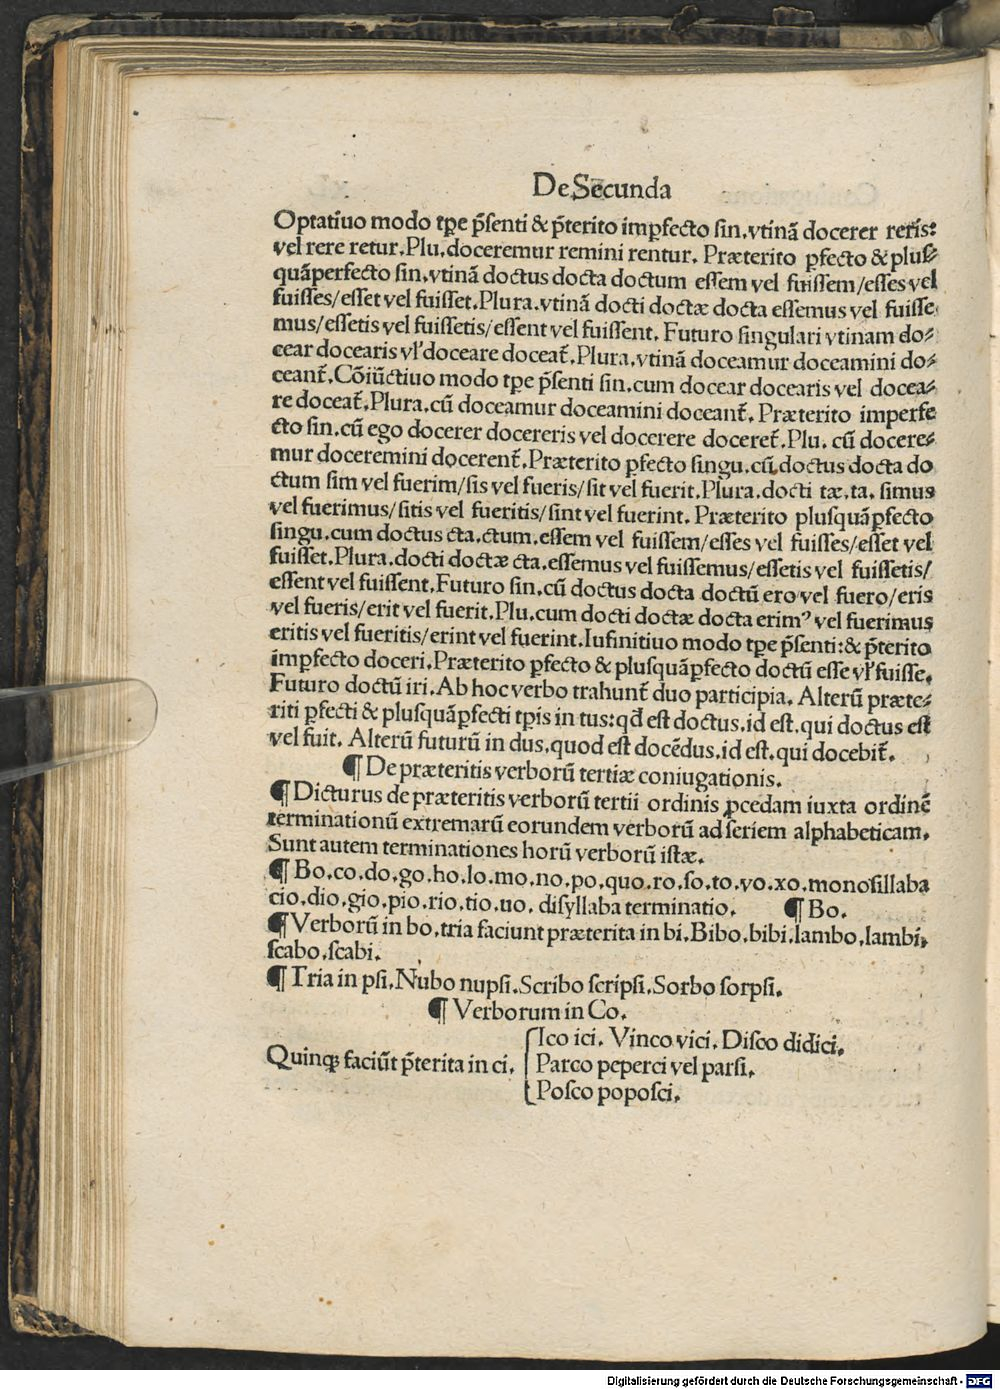 De Secunda
Optatiuo modo tp̄e p̄senti & p̄terito imꝑfecto sin.vtinā docerer reris:
vel rere retur.Plu.doceremur remini rentur. Præterito ꝑfecto & plus⸗
quāperfecto sin.vtinā doctus docta doctum essem vel fuissem/esses vel
fuisses/esset vel fuisset.Plura.vtinā docti doctæ docta essemus vel fuisse
mus/essetis vel fuissetis/essent vel fuissent. Futuro singulari vtinam do⸗
cear docearis vl̓ doceare doceat̄.Plura.vtinā doceamur doceamini do⸗
ceant̄.Cōiūctiuo modo tp̄e p̄senti sin.cum docear docearis vel docea⸗
re doceat̄.Plura.cū doceamur doceamini doceant̄. Præterito imperfe
cto sin.cū ego docerer docereris vel docerere doceret̄.Plu. cū docere⸗
mur doceremini docerent̄.Præterito ꝑfecto singu.cū doctus docta do
ctum sim vel fuerim/sis vel fueris/sit vel fuerit.Plura.docti tæ.ta. simus
vel fuerimus/sitis vel fueritis/sint vel fuerint. Præterito plusquāꝑfecto
singu.cum doctus cta.ctum.essem vel fuissem/esses vel fuisses/esset vel
fuisset.Plura.docti doctæ cta.essemus vel fuissemus/essetis vel fuissetis/
essent vel fuissent.Futuro sin.cū doctus docta doctū ero vel fuero/eris
vel fueris/erit vel fuerit.Plu.cum docti doctæ docta erimꝰ vel fuerimus
eritis vel fueritis/erint vel fuerint.Iufinitiuo modo tp̄e p̄senti:& p̄terito
imꝑfecto doceri.Præterito ꝑfecto & plusquāꝑfecto doctū esse vl̓ fuisse.
Futuro doctū iri.Ab hoc verbo trahunt̄ duo participia. Alterū præte⸗
riti ꝑfecti & plusquāꝑfecti tp̄is in tus:qd̄ est doctus.id est.qui doctus est
vel fuit. Alterū futurū in dus.quod est docēdus.id est.qui docebit̄.
¶ De præteritis verborū tertiæ coniugationis.
¶ Dicturus de præteritis verborū tertii ordinis ꝓcedam iuxta ordinē
terminationū extremarū eorundem verborū ad seriem alphabeticam.
Sunt autem terminationes horū verborū istæ.
¶ Bo.co.do.go.ho.lo.mo.no.po.quo.ro.so.to.vo.xo.monosillaba
cio.dio.gio.pio.rio.tio.uo. disyllaba terminatio. ¶ Bo.
¶ Verborū in bo.tria faciunt præterita in bi.Bibo.bibi.lambo.lambi.
scabo.scabi.
¶ Tria in psi.Nubo nupsi.Scribo scripsi.Sorbo sorpsi.
¶ Verborum in Co.
Quinqꝫ faciūt p̄terita in ci.
Ico ici. Vinco vici. Disco didici.
Parco peperci vel parsi.
Posco poposci.
Digitalisierung gefördert durch die Deutsche Forschungsgemeinschaft - DFG